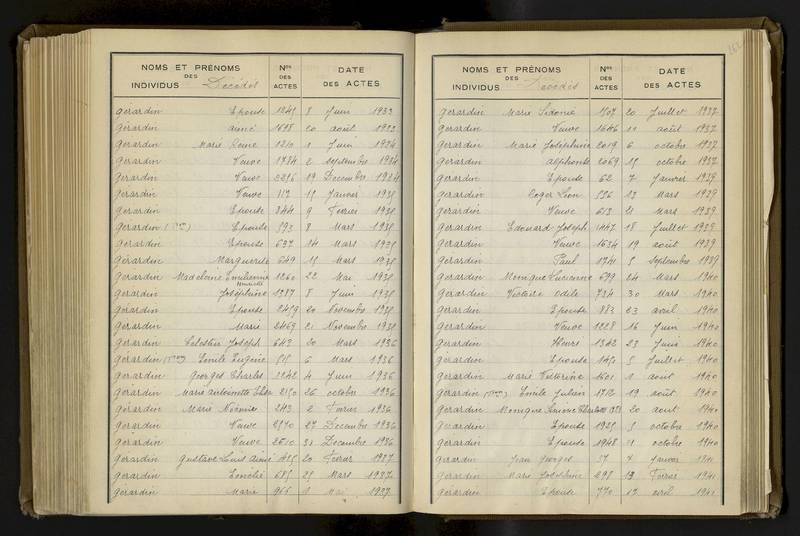 NOMS ET PRÉNOMS DES INDIVIDUS Décédés Nos DES ACTES DATE DES ACTES
Gérardin Epouse 1249 8 Juin 1933
Gérardin aimé 1698 20 août 1933
Gérardin Marie Reine 1210 1 Juin 1934
Gérardin Veuve 1734 2 Septembre 1934
Gérardin Veuve 2296 19 Decembre 1934
Gérardin Veuve 112 15 Janvier 1935
Gérardin Epouse 344 9 Fevrier 1935
Gérardin Epouse 593 8 Mars 1935
Gérardin Epouse 637 14 Mars 1935
Gérardin Marguerite 649 15 Mars 1935
Gérardin Madeleine Emilienne Henriette 1260 22 Mai 1935
Gérardin Joséphine 1387 8 Juin 1935
Gérardin Epouse 2459 20 Novembre 1935
Gérardin Marie 2469 21 Novembre 1935
Gérardin Celestin Joseph 643 20 Mars 1936
Gérardin Emile Eugène 515 6 Mars 1936
Gérardin Georges Charles 1242 4 Juin 1936
Gérardin Marie Antoinette 2150 26 octobre 1936
Gérardin Marie Noémie 243 2 Fevrier 1936
Gérardin Veuve 2570 27 Decembre 1936
Gérardin Veuve 2610 31 Decembre 1936
Gérardin Gustave Louis Aimé 425 20 Fevrier 1937
Gérardin 685 25 Mars 1937
Gérardin Marie 966 1 Mai 1937
NOMS ET PRÉNOMS DES INDIVIDUS Décédés Nos DES ACTES DATE DES ACTES
Gérardin Marie Sidonie 1507 20 Juillet 1937
Gérardin Veuve 1646 11 août 1937
Gérardin Marie Joséphine 2019 6 octobre 1937
Gérardin Alphonse 2069 15 octobre 1937
Gérardin Epouse 62 7 Janvier 1939
Gérardin Roger Léon 596 13 Mars 1939
Gérardin Veuve 613 21 Mars 1939
Gérardin Edouard Joseph 1447 18 Juillet 1939
Gérardin Veuve 1634 19 août 1939
Gérardin Paul 1741 5 Septembre 1939
Gérardin Monique Lucienne 699 24 Mars 1940
Gérardin Victoire Odile 734 30 Mars 1940
Gérardin Epouse 883 23 avril 1940
Gérardin Veuve 1228 16 Juin 1940
Gérardin Henri 1342 23 Juin 1940
Gérardin Epouse 1450 5 Juillet 1940
Gérardin Marie Victorine 1601 1 août 1940
Gérardin Emile Julien 1712 19 août 1940
Gérardin Monique 20 août 1940
Gérardin Epouse 1925 5 octobre 1940
Gérardin Epouse 1948 11 octobre 1940
Gérardin Jean Georges 57 7 Janvier 1941
Gérardin Marie Joséphine 298 13 Fevrier 1941
Gérardin Epouse 770 17 avril 1941